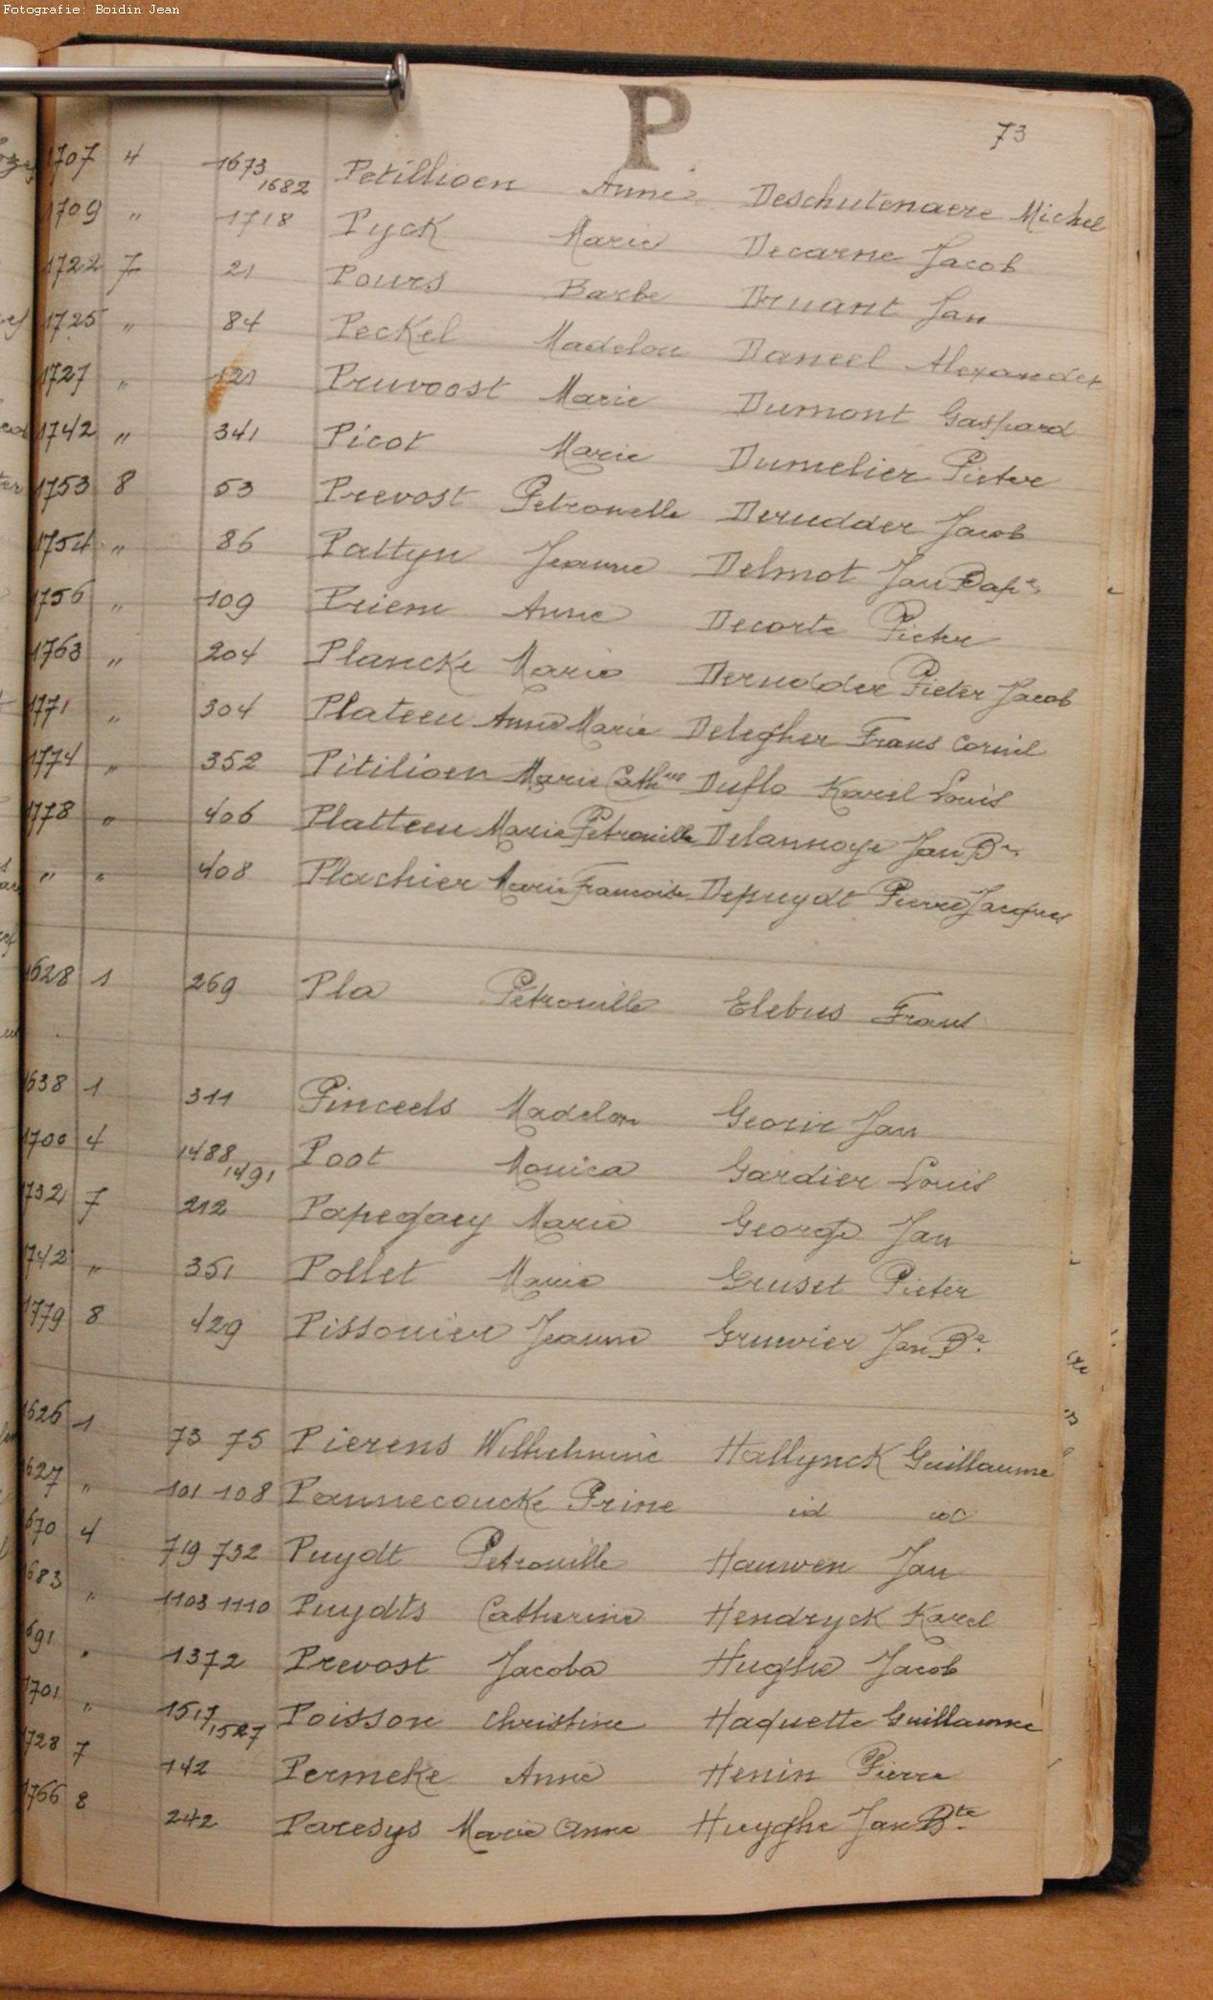 Fotografie: Boidin Jean
P
73
1707 4 1673 1682 Petillioen Anne Deschutenaere Michel
1709 " 1718 Pyck Marie Decarne Jacob
1722 7 21 Pours Barbe Druant Jan
1725 " 84 Peckel Madelon Daneel Alexander
1727 " 121 Pruvoost Marie Dumont Gaspard
1742 " 341 Picot Marie Dumelier Pieter
1753 8 53 Prevost Petronelle Derudder Jacob
1754 " 86 Pattyn Jeanne Delmot Jan Bapte
1756 " 109 Priem Anne Decorte Pieter
1763 " 204 Plancke Marie Derudder Pieter Jacob
1771 " 304 Plateeu Anne Marie Delegher Frans Cornil
1774 " 352 Pitilioen Marie Cathne Duflo Karel Louis
1778 " 406 Platteeu Marie Petronille Delannoye Jan Bte
" " 408 Plachier Marie Francoise Depuydt Pierre Jacques
1628 1 269 Pla Petronille Elebus Frans
1638 1 311 Pinceels Madelon Georir Jan
1700 4 1488 1491 Poot Monica Gardier Louis
1732 7 212 Papegaey Marie George Jan
1742 " 351 Pollet Marie Gruset Pieter
1779 8 429 Pissonier Jeanne Gruwier Jan Bte
1626 1 73 75 Pierens Wilhelmine Hallynck Guillaume
1627 " 101 108 Pannecoucke Prine id id
1670 4 719 732 Puydt Petronille Hauwen Jan
1683 " 1103 1110 Puydts Catherine Hendryck Karel
1691 " 1372 Prevost Jacoba Hughe Jacob
1701 " 1517 1527 Poisson Christine Haquette Guillaume
1728 7 142 Permeke Anne Henin Pierre
1766 8 242 Paresys Marie Anne Huyghe Jan Bte